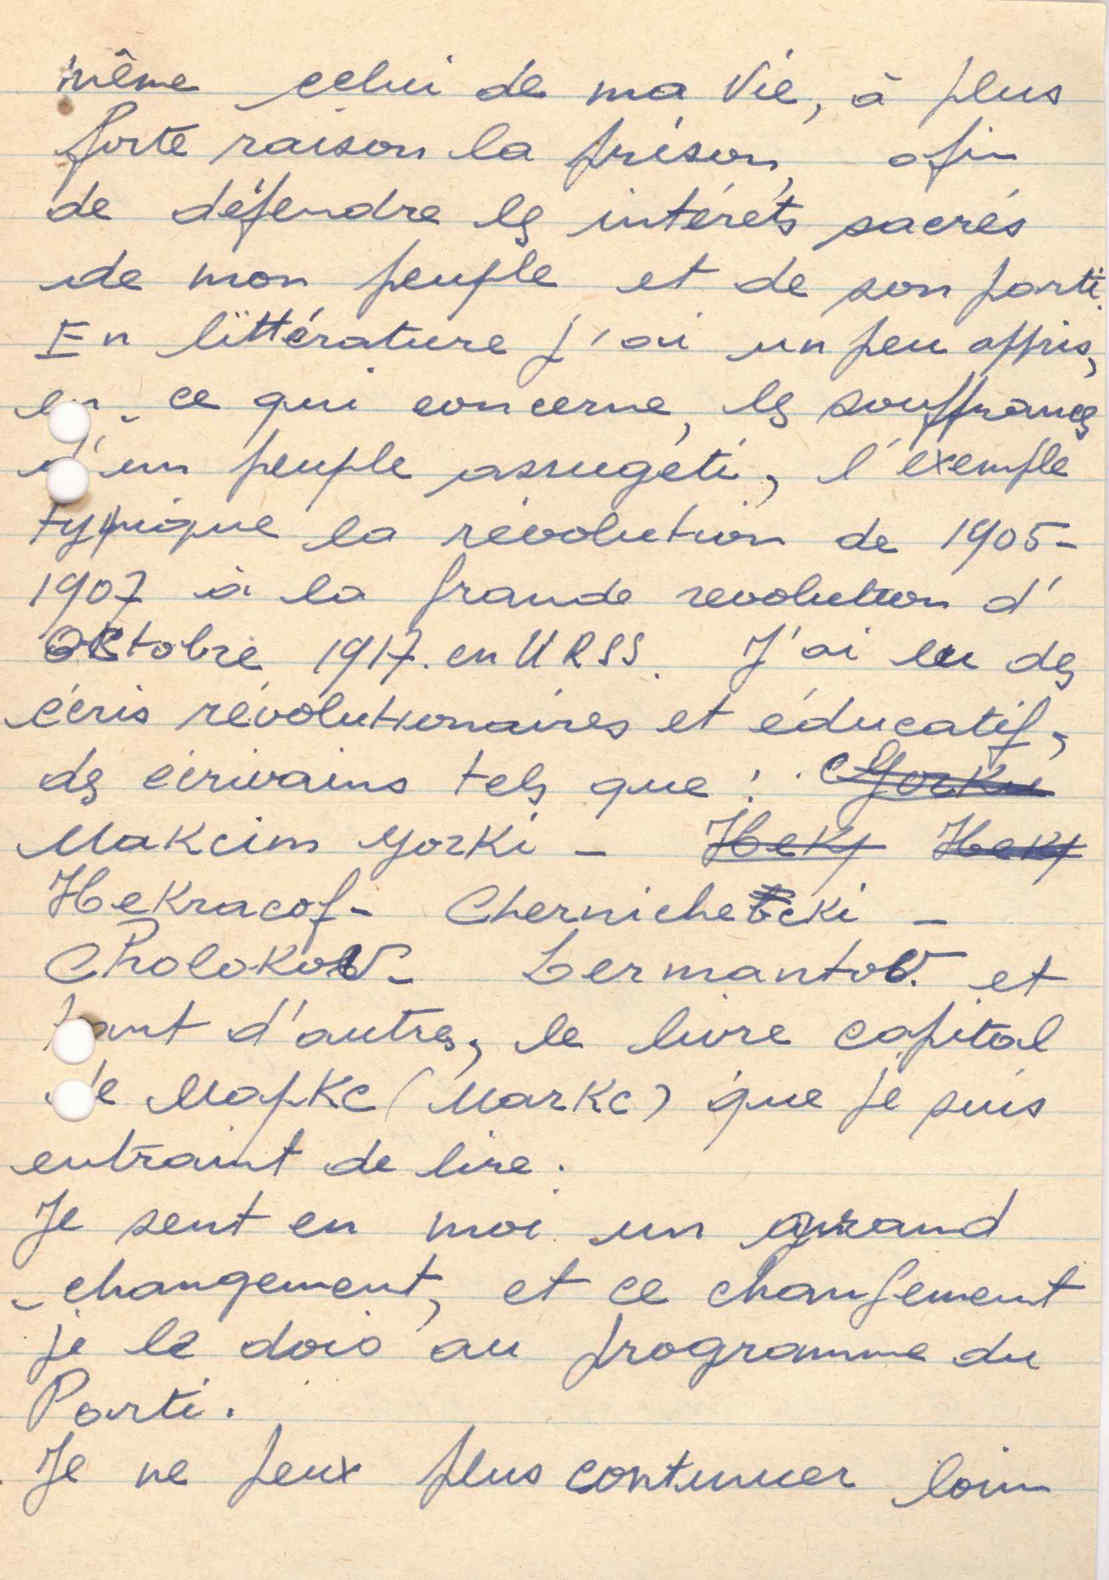 même celui de ma vie, à plus
forte raison la prison, afin
de défendre les intérêts sacrés
de mon peuple et de son parti.
En littérature j'ai un peu appris,
en ce qui concerne, les souffrances
d'un peuple assugéti, l'exemple
typique la révolution de 1905-
1907 à la grande revolution d'
Octobre 1917. en URSS. J'ai lu des
écris révolutionaires et éducatif,
des écrivains tels que : Gorki
Makcim Gorki - Некр Некр
Неkracof - Chernichetcki -
Cholokov - Lermantov. et
tant d'autres, le livre capital
de Маркс (Markc) que je suis
entraint de lire.
Je sent en moi un grand
changement, et ce changement
je le dois au programme du
Parti.
Je ne peux plus continuer loin